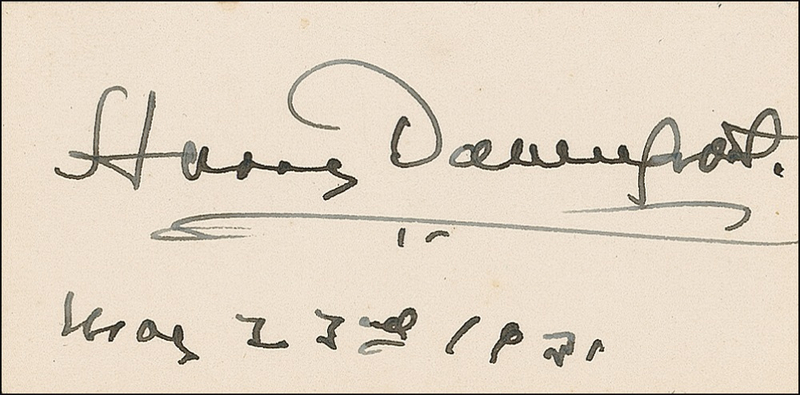 Harry Davenport.
May 22nd 1931